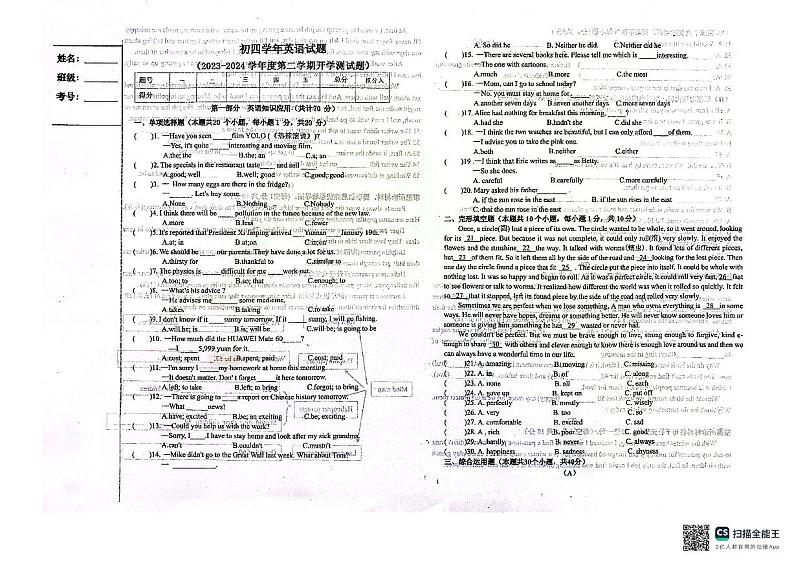 姓名:
班级:
考号:
初四学年英语试题
(2023-2024 学年度第二学期开学测试题)
题号 一 二 三 四 五 总分 核分人
得分
第一部分 英语知识应用(共计70 分)
一、单项选择题(本题共20 个小题,每小题1 分,共20 分)
( )1. —Have you seen film YOLO (《热辣滚烫》)?
—Yes, it's quite interesting and moving film.
A.the; the B.the; an C.a; an
( )2. The specials in the restaurant taste and sell .
A.good; well B.well; good C.good; good
( )3. — How many eggs are there in the fridge?
— . Let's buy some.
A.None B.Nothing C.Nobody
( )4. I think there will be pollution in the future because of the new law.
A.more B.less C.fewer
( )5. It's reported that President Xi Jinping arrived Yunnan January 19th.
A.at; in B.at; on C.in; on
( )6. We should be our parents. They have done a lot for us.
A.thirsty for B.thankful to C.similar to
( )7. The physics is difficult for me work out.
A.too; to B.so; that C.enough; to
( )8. —What's his advice?
—He advises me some medicine.
A.take B.taking C.to take
( )9. I don't know if it sunny tomorrow. If it sunny, I will go fishing.
A.will be; is B.is; will be C.will be; is going to be
( )10. —How much did the HUAWEI Mate 60 ?
—I 5,999 yuan for it.
A.cost; spent B.spent; paid C.cost; paid
( )11.—I'm sorry I my homework at home this morning.
—It doesn't matter. Don't forget it here tomorrow.
A.left; to take B.left; to bring C.forgot; to bring
( )12. —There is going to a report on Chinese history tomorrow.
—What news!
A.have; excited B.be; an exciting C.be; exciting
( )13. —Could you help us with the work?
—Sorry, I . I have to stay home and look after my sick grandma.
A.can't B.couldn't C.mustn't
( )14. —Mike didn't go to the Great Wall last week. What about Tom?
A. So did he B. Neither he did C.Neither did he
( )15. —There are several books here. Please tell me which is interesting.
—The one with cartoons.
A.much B.more C.the most
( )16. —Mom, can I go to school today?
—No, you must stay at home for .
A.another seven days B.seven another days C.more seven days
( )17. Alice had nothing for breakfast this morning, ?
A.had she B.hadn't she C.did she
( )18. —I think the two watches are beautiful, but I can only afford of them.
—I advise you to take the pink one.
A.both B.neither C.either
( )19. —I think that Eric writes as as Betty.
—So she does.
A. careful B.carefully C.more carefully
( )20. Mary asked his father .
A. if the sun rose in the east B. if the sun rises in the east
C. that the sun rose in the east
二、完形填空题(本题共 10 个小题,每小题 1 分,共 10 分)
Once, a circle(圆) lost a piece of its own. The circle wanted to be whole, so it went around, looking
for its 21 piece. But because it was not complete, it could only roll(滚) very slowly. It enjoyed the
flowers and the sunshine 22 the way. It talked with worms(蠕虫). It found lots of different pieces,
but 23 of them fit. So it left them all by the side of the road and 24 looking for the lost piece. Then
one day the circle found a piece that fit 25 . The circle put the piece into itself. It could be whole with
nothing lost. It was so happy and began to roll. As it was a perfect circle, it could roll very fast, 26 fast
to see flowers or talk to worms. It realized how different the world was when it rolled so quickly. It felt
so 27 that it stopped, left its found piece by the side of the road and rolled very slowly.
Sometimes we are perfect when we lose something. A man who owns everything is 28 in some
ways. He will never have hopes, dreams or something better. He will never know someone loves him or
someone is giving him something he has 29 wanted or never had.
We couldn't be perfect. But we must be brave enough to love, strong enough to forgive, kind e-
nough to share 30 with others and clever enough to know there is enough love around us and then we
can always have a wonderful time in our life.
( )21. A. amazing B. moving C. missing
( )22. A. in B. of C. along
( )23. A. none B. all C. each
( )24. A. gave up B. kept on C. put off
( )25. A. perfectly B. mostly C. wisely
( )26. A. very B. too C. so
( )27. A. comfortable B. excited C. sad
( )28. A. rich B. poor C. good
( )29. A. hardly B. never C. always
( )30. A. happiness B. sadness C. shyness
三、综合运用题(本题共30个小题,共40分)
(A)
扫描全能王
3亿人都在用的扫描App